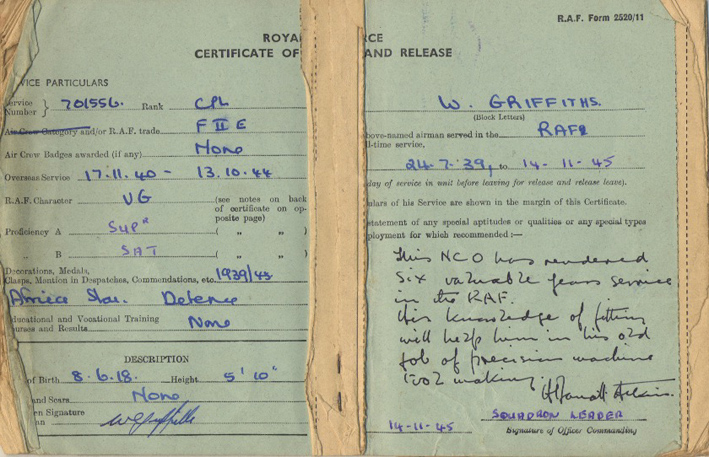 R.A.F. Form 2520/11
ROYA RCE
CERTIFICATE OF AND RELEASE
VICE PARTICULARS
Service Number } 701556. Rank CPL
Air Crew Category and/or R.A.F. trade F II E
Air Crew Badges awarded (if any) None
Overseas Service 17.11.40 - 13.10.44
R.A.F. Character VG (see notes on back of certificate on opposite page)
Proficiency A SupR ( „ „ )
„ B SAT ( „ „ )
Decorations, Medals, 1939/45
Clasps, Mention in Despatches, Commendations, etc.
Africa Star. Defence
Educational and Vocational Training None
urses and Results
DESCRIPTION
of Birth 8.6.18. Height 5' 10"
and Scars None
en Signature
an
W. GRIFFITHS.
(Block Letters)
bove-named airman served in the RAFR
l-time service,
24.7.'39, to 14-11-45
day of service in unit before leaving for release and release leave).
ulars of his Service are shown in the margin of this Certificate.
statement of any special aptitudes or qualities or any special types
ployment for which recommended :—
This NCO has rendered
six valuable years service
in the RAF.
His knowledge of fitting
will help him in his old
job of precision machine
tool making.
SQUADRON LEADER
14-11-45 Signature of Officer Commanding